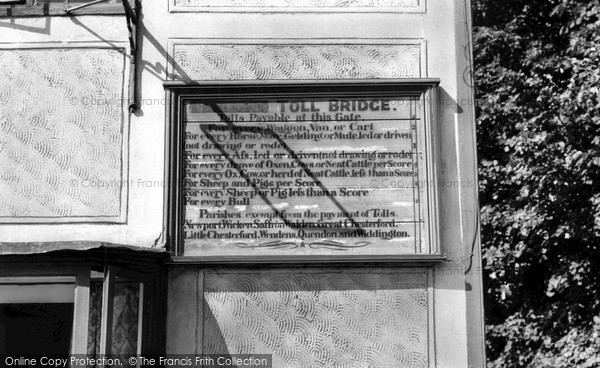 TOLL BRIDGE.
Tolls Payable at this Gate.
For every Waggon, Van, or Cart
For every Horse, Mare, Gelding or Mule, led or driven
not drawing or rode
For every Ass, led or driven not drawing or rode
For every drove of Oxen, Cows, or Neat Cattle per Score
For every Ox, Cow, or herd of Neat Cattle, less than a Score
For Sheep and Pigs per Score
For every Sheep or Pig less than a Score
For every Bull
Parishes exempt from the payment of Tolls.
Newport, Wicken, Saffron Walden, Great Chesterford,
Little Chesterford, Wendens, Quendon, and Widdington.
Copyright Francis Frith
Online Copy Protection - © Copyright The Francis Frith Collection
http://www.francisfrith.com